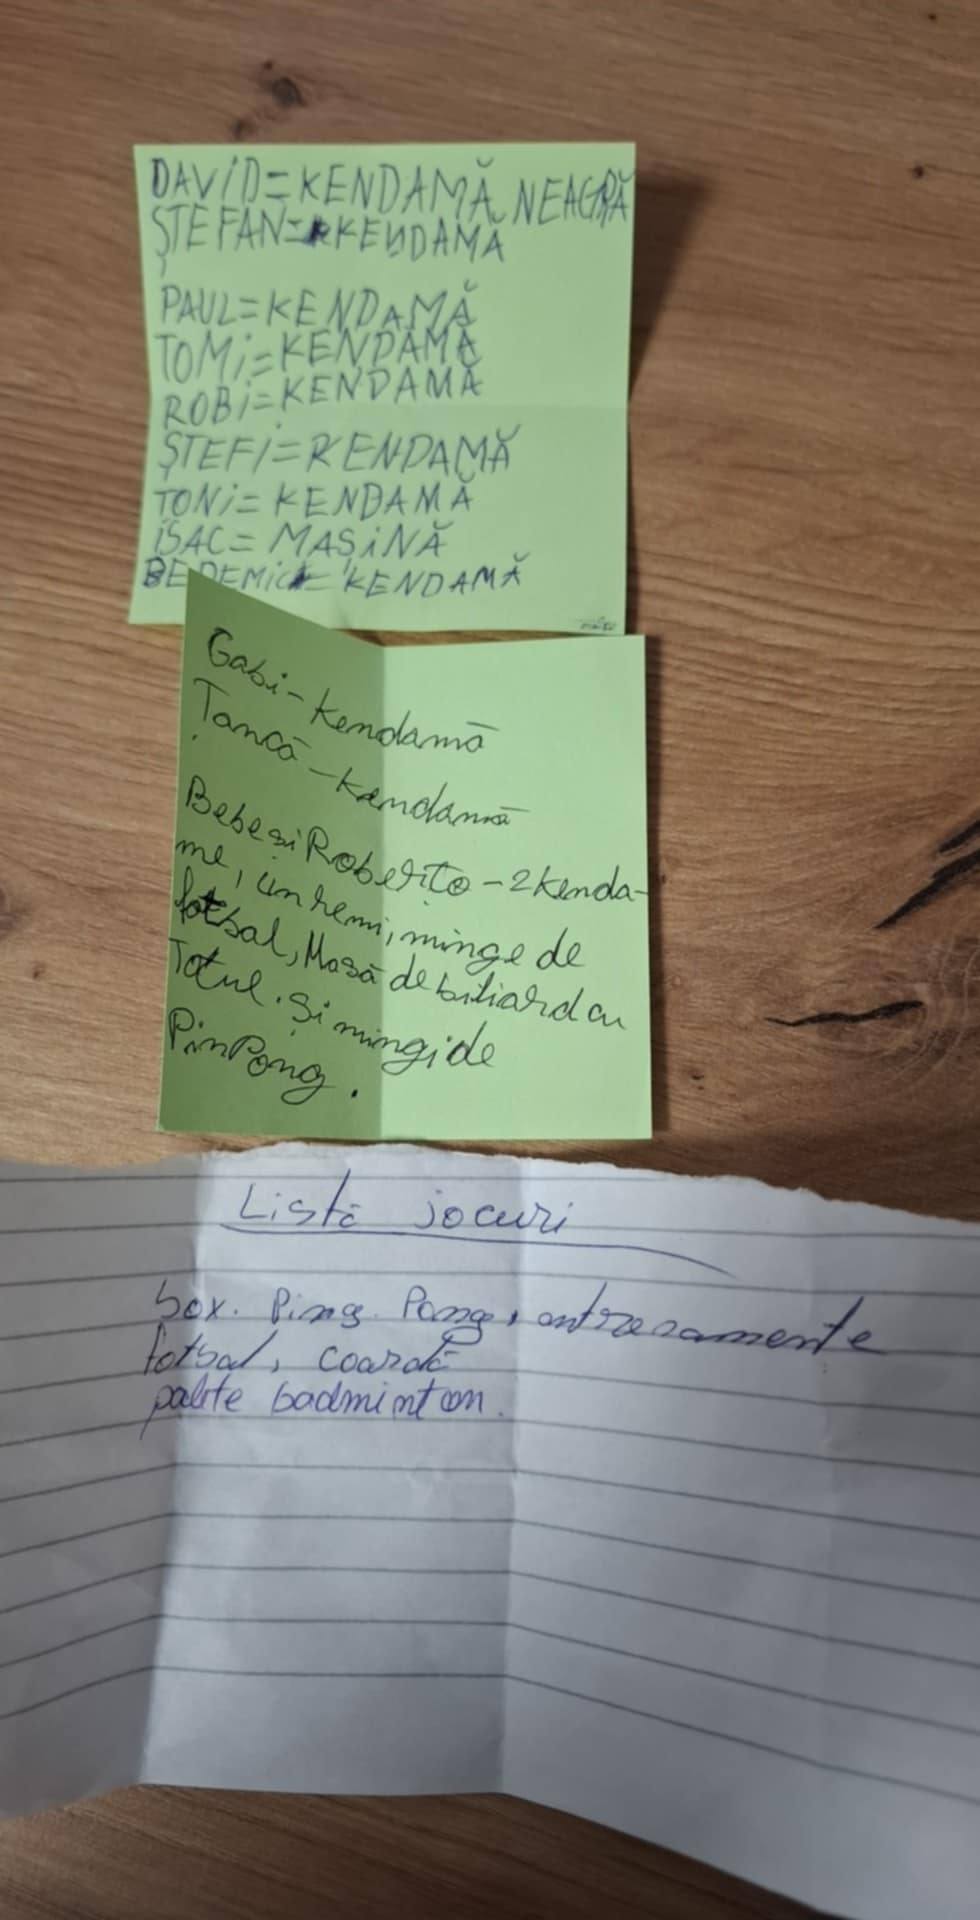 DAViD=KENDAMĂ NEAGRĂ
ȘTEFAN=KENDAMĂ
PAUL=KENDAMĂ
TOMi=KENDAMĂ
ROBi=KENDAMĂ
ȘTEFi=KENDAMĂ
TONi=KENDAMĂ
iSAC=MAȘiNĂ
KENDAMĂ
Gabi-Kendamă
Țancă-Kendamă
Bebe și Roberto-2 Kenda-
me, un remi, minge de
fotbal, Masă de biliard cu
Totul. Și mingi de
PinPong.
Listă jocuri
box. Ping Pong, antrenamente
fotbal, coardă
palete badminton.